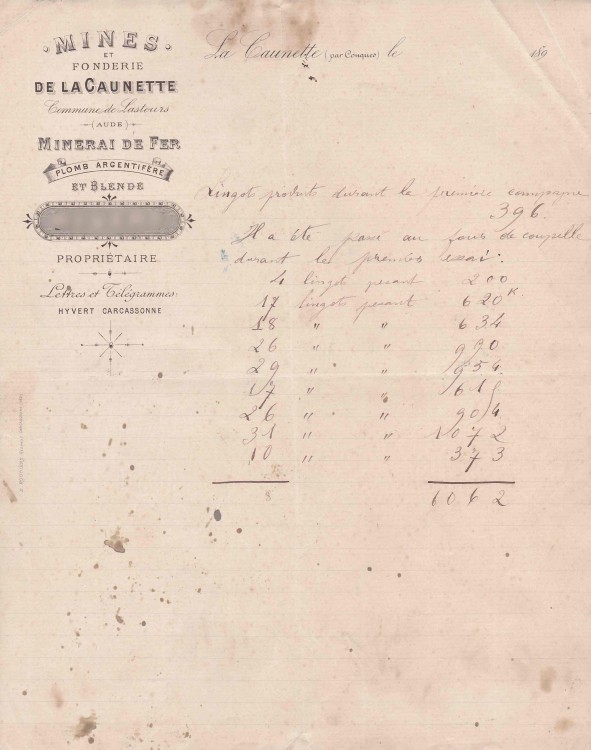 MINES
ET
FONDERIE
DE LA CAUNETTE
Commune de Lastours
(AUDE)
MINERAI DE FER
PLOMB ARGENTIFÈRE
ET BLENDE
PROPRIÉTAIRE
Lettres et Télégrammes:
HYVERT CARCASSONNE
La Caunette (par Conques) le 189
Lingot produits durant la première campagne
396.
Il a été passé au fours de coupelle
durant les premiers essai:
4 lingot pesant 200
17 lingot pesant 620 K
18 " " 634
26 " " 990
29 " " 954
17 " " 615
26 " " 904
31 " " 1072
10 " " 373
8 6062